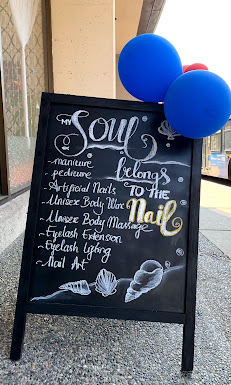 my Soul
belongs
TO THE
Nail
~ manicure
~ pedicure
~ Artificial Nails
~ Unisex Body Wax
~ Unisex Body Massage
~ Eyelash Extension
~ Eyelash Lifting
~ Nail Art